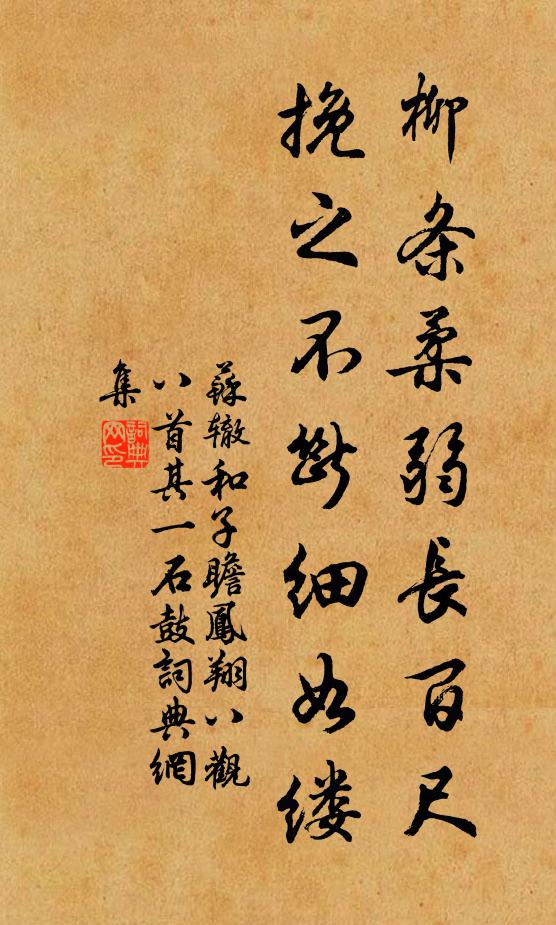 柳条柔弱長百尺
挽之不断細如缕
蘇辙和子瞻鳳翔八觀
八首其一石鼓詞典網
集
詞典
网印